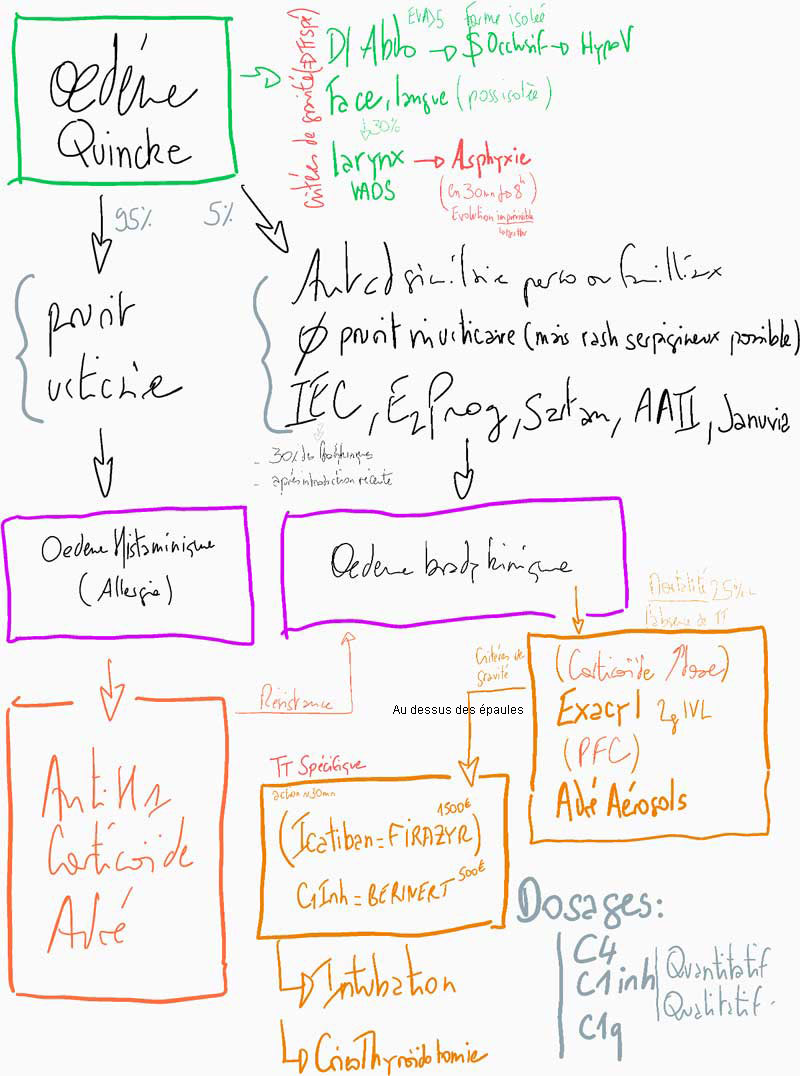 Oedéme
Quincke
Critères de gravité (=> TT spé)
Dl Abdo → $ Occlusif → HypoV
EVA>5
Forme isolée
Face, langue (poss isolée)
30%
larynx → Asphyxie
VADS
(en 30mn à 8h)
Evolution imprévisible
95%
5%
prurit
urticaire
Antcd similaire perso ou familliaux
Ø prurit ni urticaire (mais rash serpigineux possible)
IEC, E2Prog, Sartan, AAII, Januvia
- 30% des
- après introduction récente
Oedeme Histaminique
(Allergie)
Oedeme bradykinique
Mortalité 25% en
l'absence de TT
Résistance
Critères de
gravité
Au dessus des épaules
(Corticoïde /dose)
Exacyl 2g IVL
(PFC)
Adré Aérosols
AntiH1
Corticoïde
Adré
TT Spécifique
action ≈ 30mn
1500€
(Icatiban = FIRAZYR)
500€
C1Inh = BERINERT
Intubation
CricoThyroïdotomie
Dosages:
C4
C1inh
Quantitatif
Qualitatif
C1q